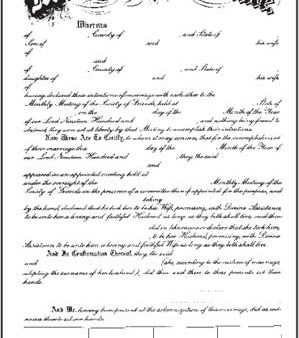 Whereas
of , County of and State of
Son of and his wife
of
and
of , County of and State of
daughter of and his wife
of
having declared their intentions of marriage with each other to the
Monthly Meeting of the Society of Friends, held at State of
, on the day of the Month of the Year
of our Lord Nineteen Hundred and , and nothing being found to
obstruct, they were set at liberty by that Meeting to accomplish their intentions.
Now These Are To Certify, to whom it may concern, that for the accomplishment
of their marriage, this day of the Month of the Year
of our Lord Nineteen Hundred and , they the said
and
appeared in an appointed meeting held at
under the oversight of the Monthly Meeting of the
Society of Friends in the presence of a committee thereof appointed for the purpose, and
taking
by the hand, declared that he took her to be his Wife, promising, with Divine Assistance
to be unto her a loving and faithful Husband as long as they both shall live, and then
did in like manner declare that she took him,
to be her Husband, promising, with Divine
Assistance to be unto him a loving and faithful Wife as long as they both shall live.
And In Confirmation Thereof, they the said
and (she, according to the custom of marriage,
adopting the surname of her husband), did then and there to these presents set their
hands.
And We, having been present at the solemnization of the marriage, that as wit-
nesses thereto set our hands.